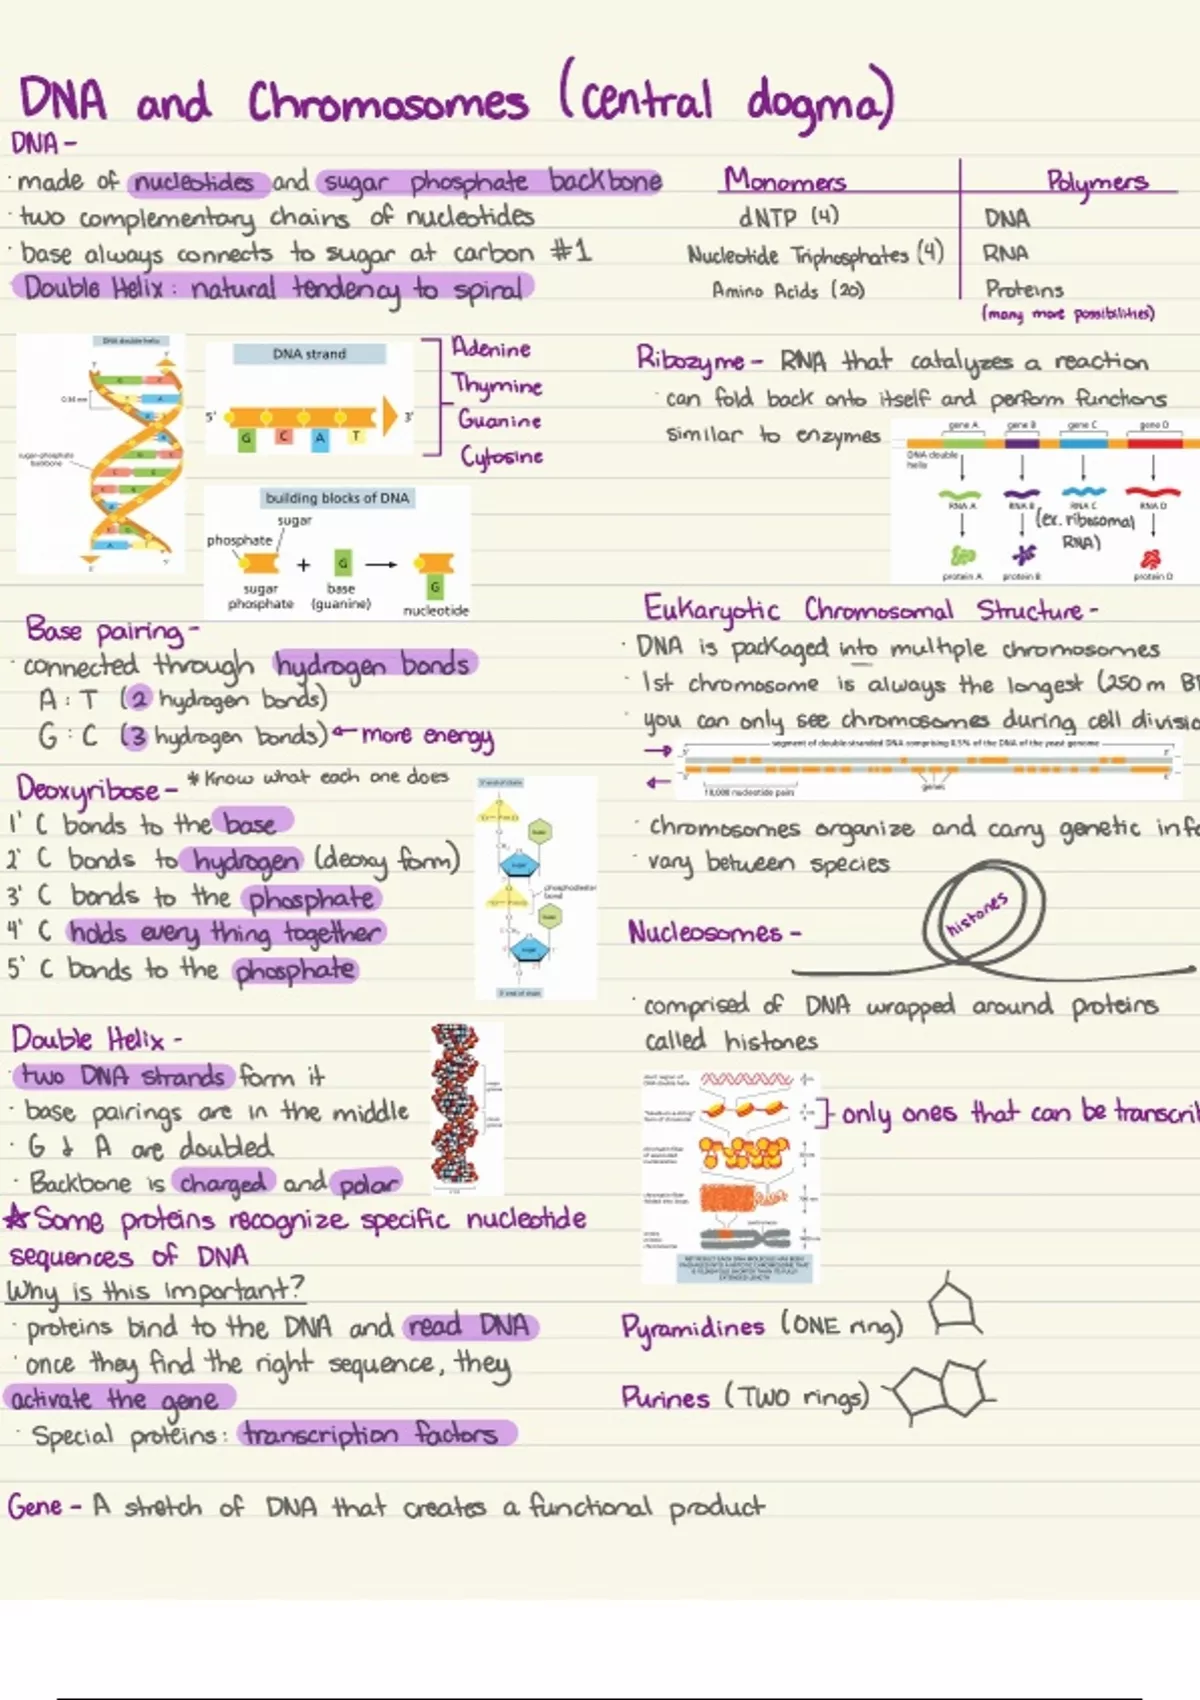 DNA and Chromosomes (central dogma)
DNA -
· made of nucleotides and sugar phosphate backbone
· two complementary chains of nucleotides
· base always connects to sugar at carbon #1
· Double Helix: natural tendency to spiral
Monomers Polymers
dNTP (4) DNA
Nucleotide Triphosphates (4) RNA
Amino Acids (20) Proteins
(many more possibilities)
DNA double helix
0.34 nm
sugar-phosphate
backbone
DNA strand
5' 3'
G C A T
Adenine
Thymine
Guanine
Cytosine
building blocks of DNA
sugar
phosphate
+ G → G
sugar
phosphate
base
(guanine)
nucleotide
Ribozyme - RNA that catalyzes a reaction
· can fold back onto itself and perform functions
similar to enzymes
gene A gene B gene C gene D
DNA double
helix
RNA A RNA B RNA C RNA D
(ex. ribosomal
RNA)
protein A protein B protein D
Base pairing -
· connected through hydrogen bonds
A : T (2 hydrogen bonds)
G : C (3 hydrogen bonds) ← more energy
Eukaryotic Chromosomal Structure -
· DNA is packaged into multiple chromosomes
· 1st chromosome is always the longest (250m B
· you can only see chromosomes during cell divisio
segment of double-stranded DNA comprising 0.5% of the DNA of the yeast genome
5' 3'
genes
10,000 nucleotide pairs
· chromosomes organize and carry genetic info
· vary between species
Deoxyribose - * Know what each one does
1' C bonds to the base
2' C bonds to hydrogen (deoxy form)
3' C bonds to the phosphate
4' C holds every thing together
5' C bonds to the phosphate
5' end of chain
base
sugar
phosphodiester
bond
base
sugar
3' end of chain
Nucleosomes -
histones
· comprised of DNA wrapped around proteins
called histones
short region of
DNA double helix
} only ones that can be transcri
Double Helix -
· two DNA strands form it
· base pairings are in the middle
· G & A are doubled
· Backbone is charged and polar
☆ Some proteins recognize specific nucleotide
sequences of DNA
Why is this important?
· proteins bind to the DNA and read DNA
· once they find the right sequence, they
activate the gene
· Special proteins: transcription factors
Pyramidines (ONE ring)
Purines (TWO rings)
Gene - A stretch of DNA that creates a functional product